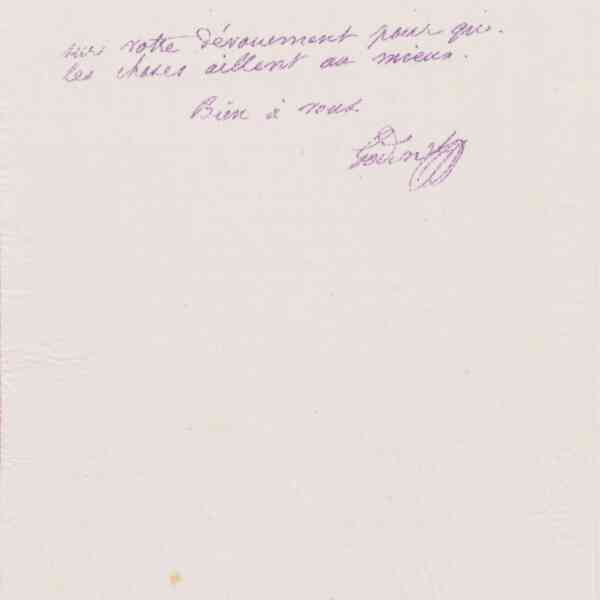 sur votre dévouement pour que
les choses aillent au mieux.
Bien à vous
Godin